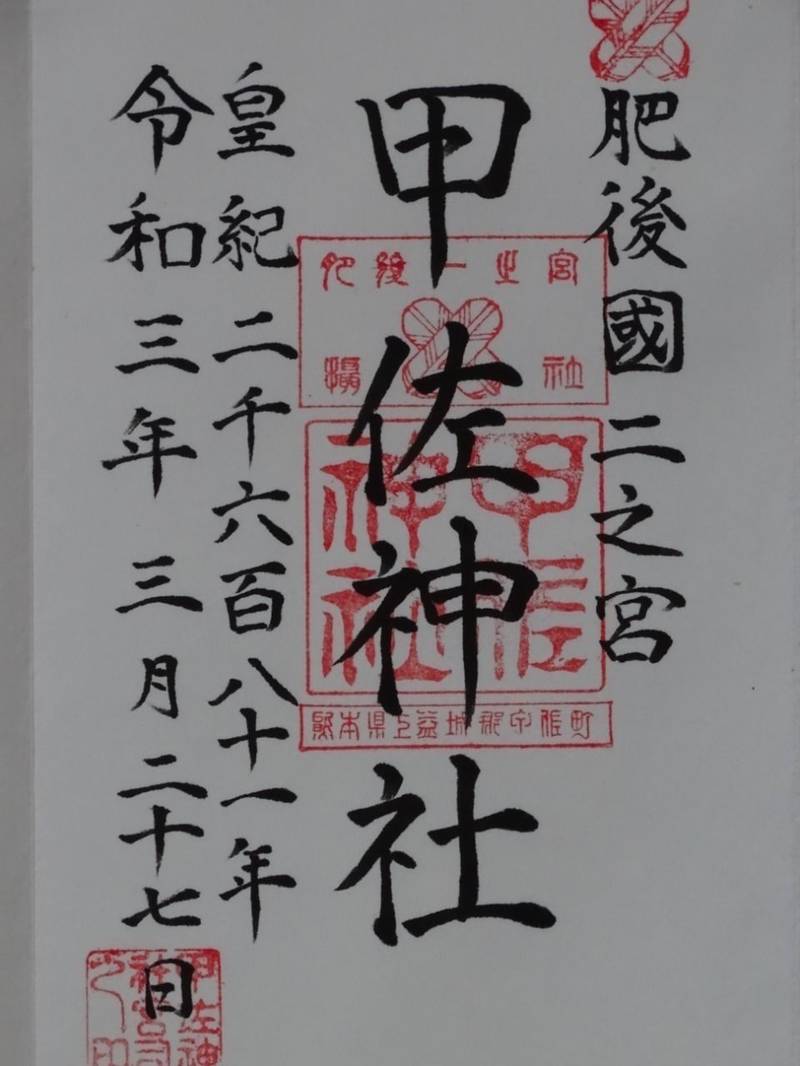 肥後國二之宮
甲佐神社
肥後一之宮
摂社
甲佐神社
熊本県上益城郡甲佐町
皇紀二千六百八十一年
令和三年三月二十七日
甲佐神社宮司之印